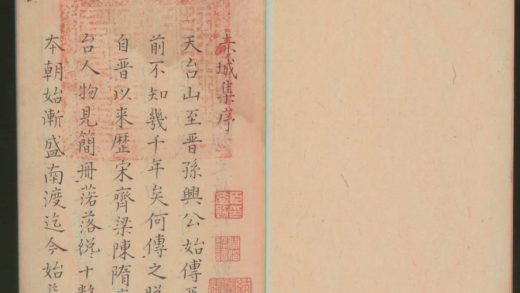 赤城集序
天台山至晉孫興公始傳
前不知幾千年矣何傳之
自晉以来歴宋齊梁陳隋
台人物見簡冊落落纔十數
本朝始漸盛南渡迄今始